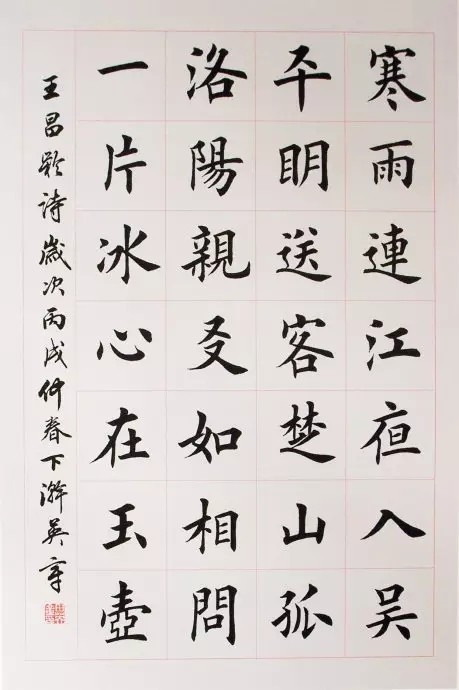 寒雨連江夜入吴
平明送客楚山孤
洛陽親友如相問
一片冰心在玉壺
王昌齡诗歲次丙戌仲春下澣英宰